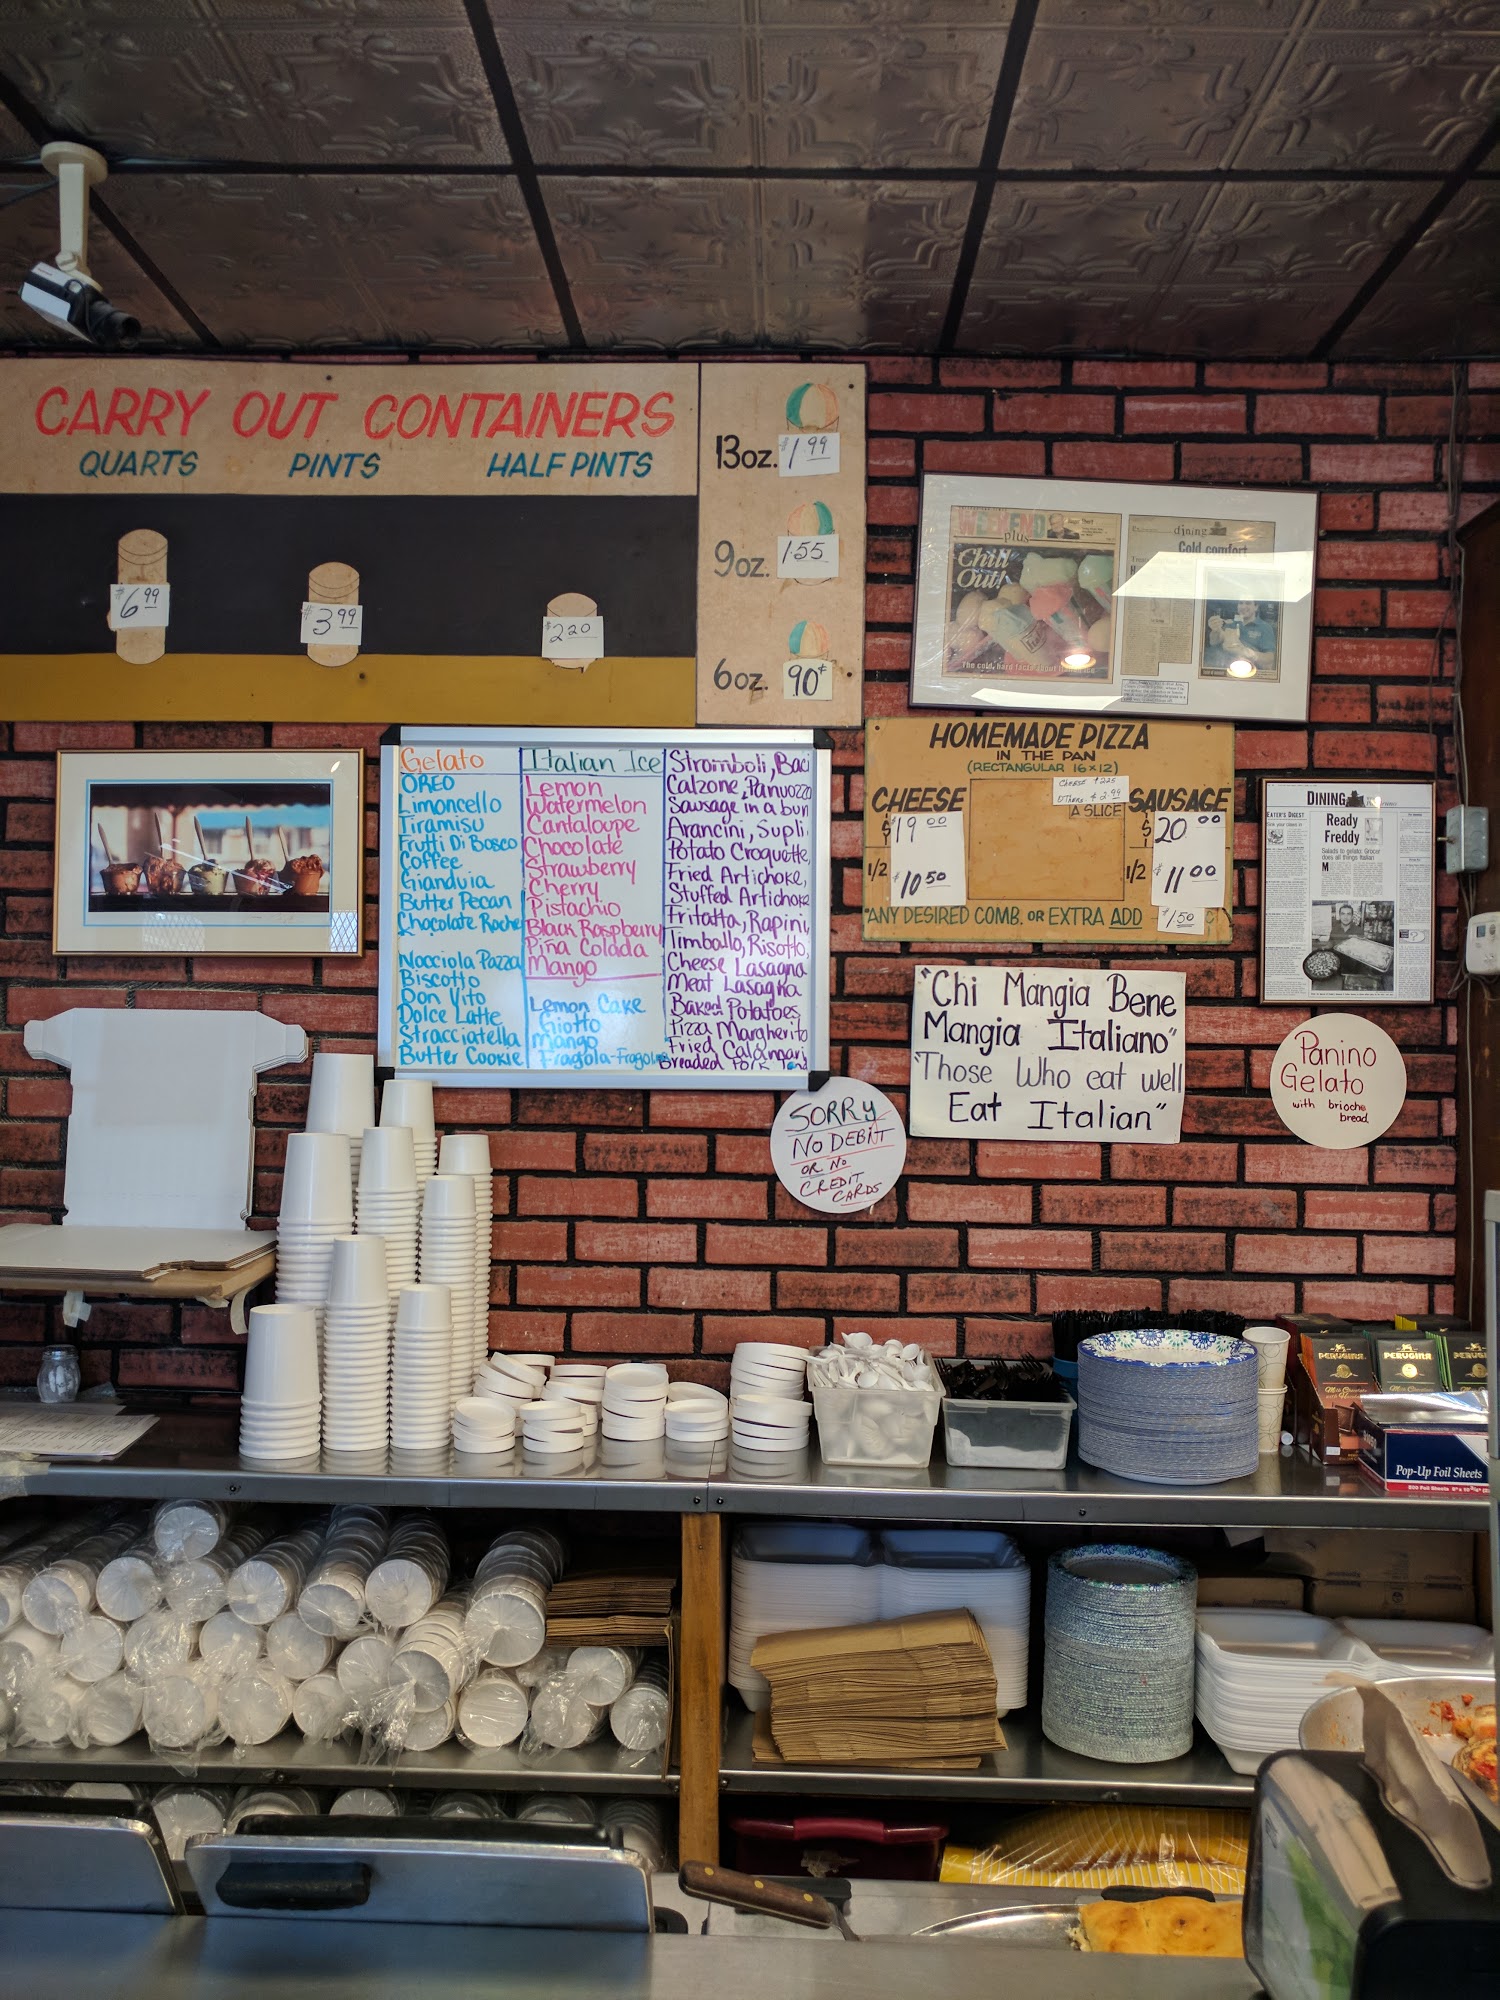 CARRY OUT CONTAINERS
QUARTS PINTS HALF PINTS
$6.99
$3.99
$2.20
13oz. $1.99
9oz. 1.55
6oz. 90¢
WEEKEND
plus
Chill
Out!
The cold, hard facts about
dining
Cold comfort
Gelato
OREO
Limoncello
Tiramisu
Frutti Di Bosco
Coffee
Gianduia
Butter Pecan
Chocolate Roche
Nocciola Pazza
Biscotto
Don Vito
Dolce Latte
Stracciatella
Butter Cookie
Italian Ice
Lemon
Watermelon
Cantaloupe
Chocolate
Strawberry
Cherry
Pistachio
Black Raspberry
Piña Colada
Mango
Lemon Cake
Giotto
Mango
Fragola-Fragola
Stromboli, Baci
Calzone, Panuozzo
Sausage in a bun
Arancini, Supli
Potato Croquette,
Fried Artichoke,
Stuffed Artichoke
Frittatta, Rapini,
Timballo, Risotto,
Cheese Lasagna
Meat Lasagna
Baked Potatoes
Pizza Margherito
Fried Calamari
Breaded Pork
HOMEMADE PIZZA
IN THE PAN
(RECTANGULAR 16x12)
CHEESE $2.25
OTHERS $2.99
A SLICE
CHEESE
$19.00
1/2 $10.50
SAUSAGE
$20.00
1/2 $11.00
"ANY DESIRED COMB. OR EXTRA ADD $1.50
DINING
EATER'S DIGEST
Ready
Freddy
Salads to gelato: Grocer
does all things Italian
"Chi Mangia Bene
Mangia Italiano"
"Those Who eat well
Eat Italian"
Panino
Gelato
with brioche
bread
SORRY
NO DEBIT
OR NO
CREDIT
CARDS
PERUGINA
PERUGINA
PERUGINA
Pop-Up Foil Sheets